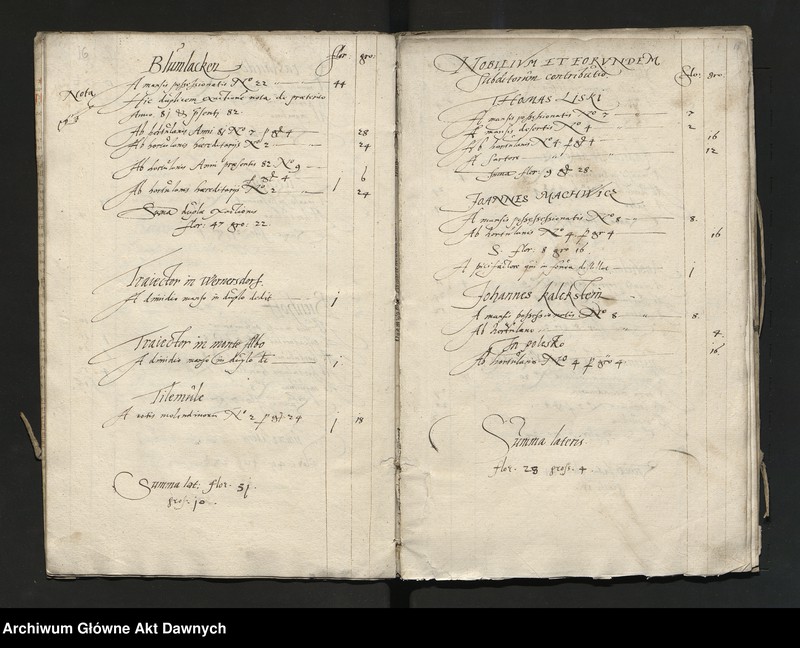 16
Blumlacken flor gro:
Nota
A mansis possessionatis No 22 44
Hic duplicem exactionem nota, de praeterito
Anno 81 et p̄senti 82.
Ab hortulanis Anni 81 No 7 p gr 4 28
Ab hortulanis haereditarijs No 2 24
Ab hortulanis Anni praesentis 82 No 9
p gr 4 1 6
Ab hortulanis haereditarijs No 2 24
Suma duplae exactionis
flor: 47 gro: 22.
Traiector in Wernersdorf.
A dimidio manso in duplo dedit 1
Traiector in monte Albo
A dimidio manso in duplo 1
Tilemule
A rotis molendinorum No 2 p gr. 24 1 18
Summa lat: flor. 51.
gros. 10.
NOBILIVM ET EORVNDEM
Subditorum contributio Flo: gro:
THOMAS LISKI
A mansis possessionatis No 7 7
A mansis desertis No 4 2
Ab hortulanis No 4 p gr 4 16
A sartore 12
Suma flor: 9 gr 28.
JOANNES MACHWICZ
A mansis possessionatis No 8 8.
Ab hortulanis No 4 p gr 4 16
S. flor: 8 gro 16
A picis factore qui 1
Johannes kalckstein
A mansis possessionatis No 8 8.
Ab hortulano 4.
In polesko
Ab hortulanis No 4 p gro 4 16
Summa lateris.
flor. 28 gross. 4.
Archiwum Główne Akt Dawnych